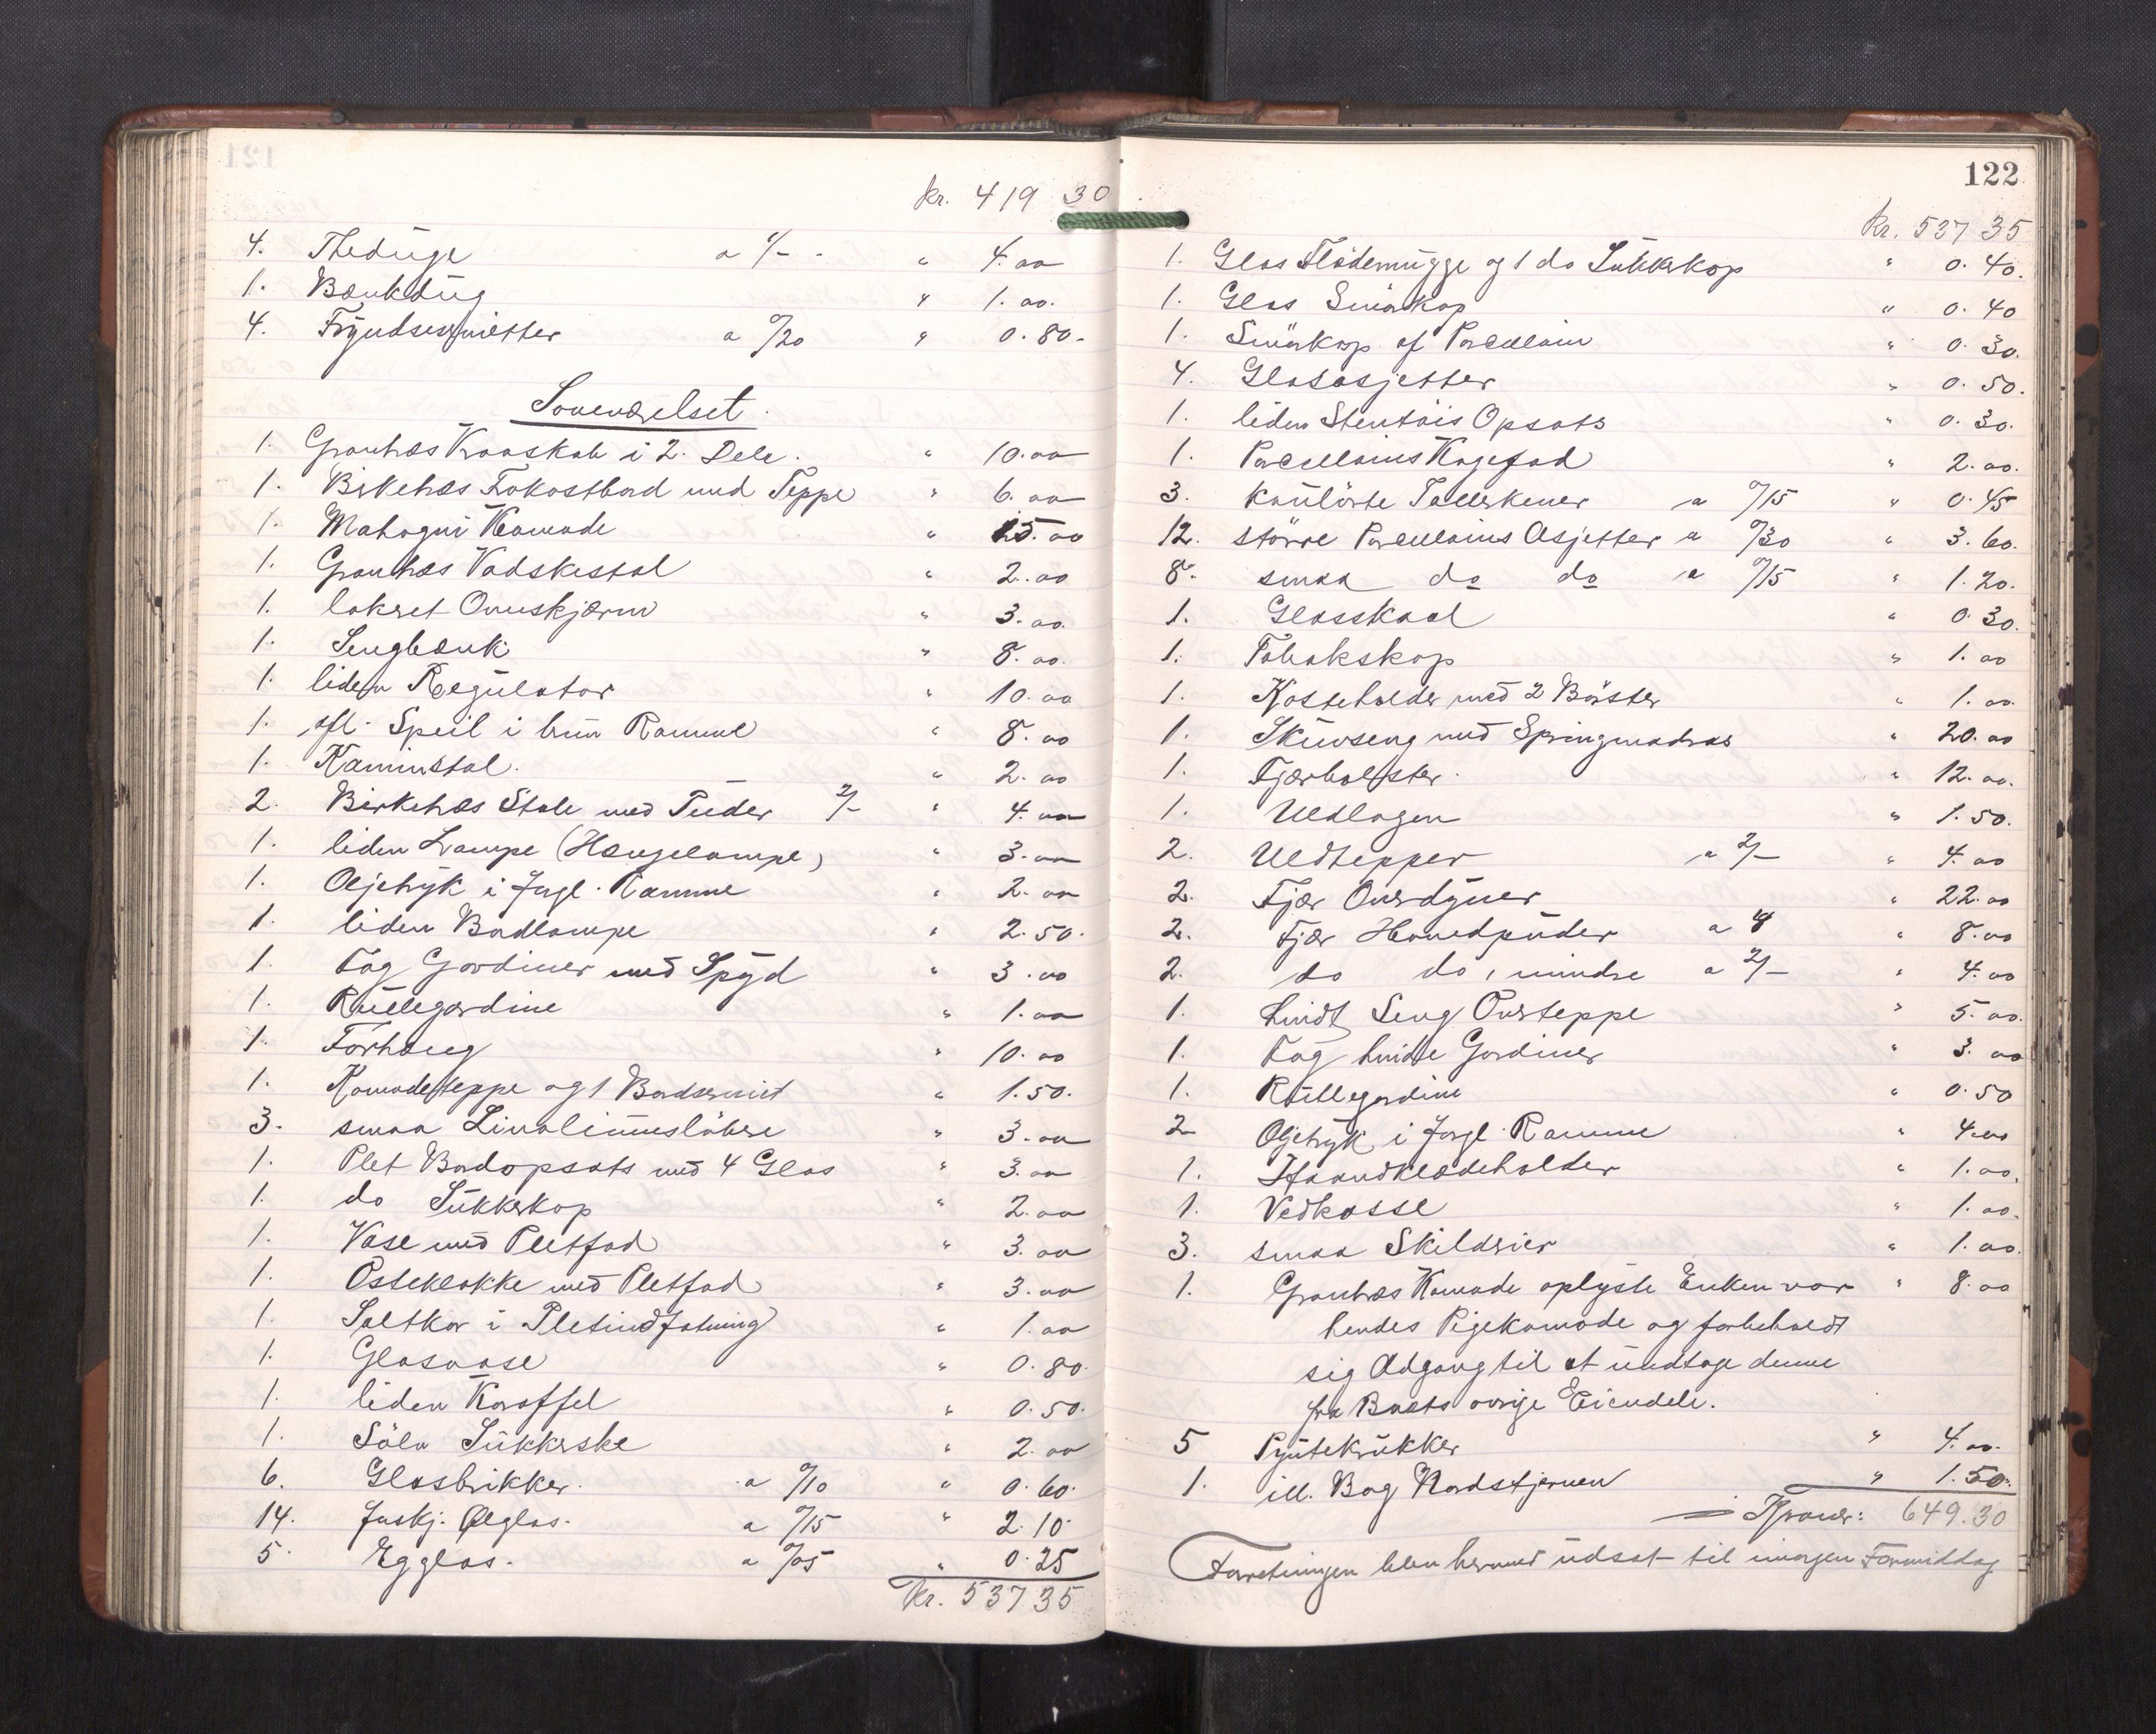 kr. 419 30
4. Theduge a 1/- . " 4. 00
1. Bænkdug " 1. 00.
4. Fryndseservietter a 0/20 " 0. 80.
Soveværelset.
1. Granträs Kraaskab i 2. Dele. " 10. 00
1. Birketræs Frokostbord med Teppe " 6. 00
1. Mahogni Komode " 15. 00
1. Granträs Vadskestol " 2. 00
1. lakeret Ovnskjærm " 3. 00.
1. Sengbænk " 8. 00.
1. liden Regulator " 10. 00
1. afl. Speil i brun Ramme " 8. 00
1. Kaminstol. " 2. 00
2. Birketræs Stole med Puder 2/- " 4. 00
1. liden Lampe (Hængelampe) " 3. 00
1. Oljetryk i forgl. Ramme " 2. 00
1. liden Bordlampe " 2. 50.
1. Fag Gardiner med Spyd " 3. 00
1. Rullegardine " 1. 00
1. Forhæng " 10. 00
1. Komodeteppe og 1 Bordserviet " 1. 50.
3. smaa Linoliumsløbere " 3. 00
1. Plet Bordopsats med 4 Glas " 3. 00
1. do Sukkerkop " 2. 00
1. Vase med Pletfod " 3. 00
1. Osteklokke med Pletfad " 3. 00
1. Saltkar i Pletindfatning " 1. 00
1. Glasvase " 0. 80.
1. liden Karaffel " 0. 50.
1. Sölv Sukkerske " 2. 00
6. Glasbrikker. a 0/10 " 0. 60.
14. forskj. Ølglas. a 0/15 " 2. 10
5. Egglas. a 0/05 " 0. 25
Kr. 537 35
122
Kr. 537 35
1. Glas Flødemugge og 1 do Sukkerkop " 0. 40.
1. Glas Smørkop " 0. 40
1. Smørkop af Porcellain " 0. 30.
4. Glasasjetter " 0. 50.
1. liden Stentøis Opsats " 0. 30.
1. Porcellains Kagefad " 2. 00.
3. koulörte Tallerkener a 0/15 " 0. 45
12. större Porcellains Asjetter a 0/30 " 3. 60.
8. smaa do do a 0/15 " 1. 20.
1. Glasskaal " 0. 30.
1. Tobakskop " 1. 00
1. Kosteholder med 2 Börster " 1. 00.
1. Skuvseng med Springmadras " 20. 00
1. Fjærbolster. " 12. 00.
1. Uldlagen " 1. 50.
2. Uldtepper a 2/- " 4. 00
2. Fjær Overdyner " 22. 00
2. Fjær Hovedpuder a 4 " 8. 00
2. do do, mindre a 2/- " 4. 00
1. hvidt Seng Overteppe " 5. 00.
1. Fag hvide Gardiner " 3. 00
1. Rullegardine " 0. 50
2 Oljetryk i forgl. Ramme " 4. 00
1. Haandklædeholder " 1. 00.
1. Vedkasse " 1. 00.
3. smaa Skildrier " 1. 00.
1. Granträs Komode oplyste Enken var " 8. 00
hendes Pigekomode og forbeholdt
sig Adgang til at undtage denne
fra Boets övrige Eiendele.
5 Pyntekrukker " 4. 00.
1. ill. Bog Nordstjernen " 1. 50.
Kroner: 649. 30
Forretningen blev hermed udsat til imorgen Formiddag